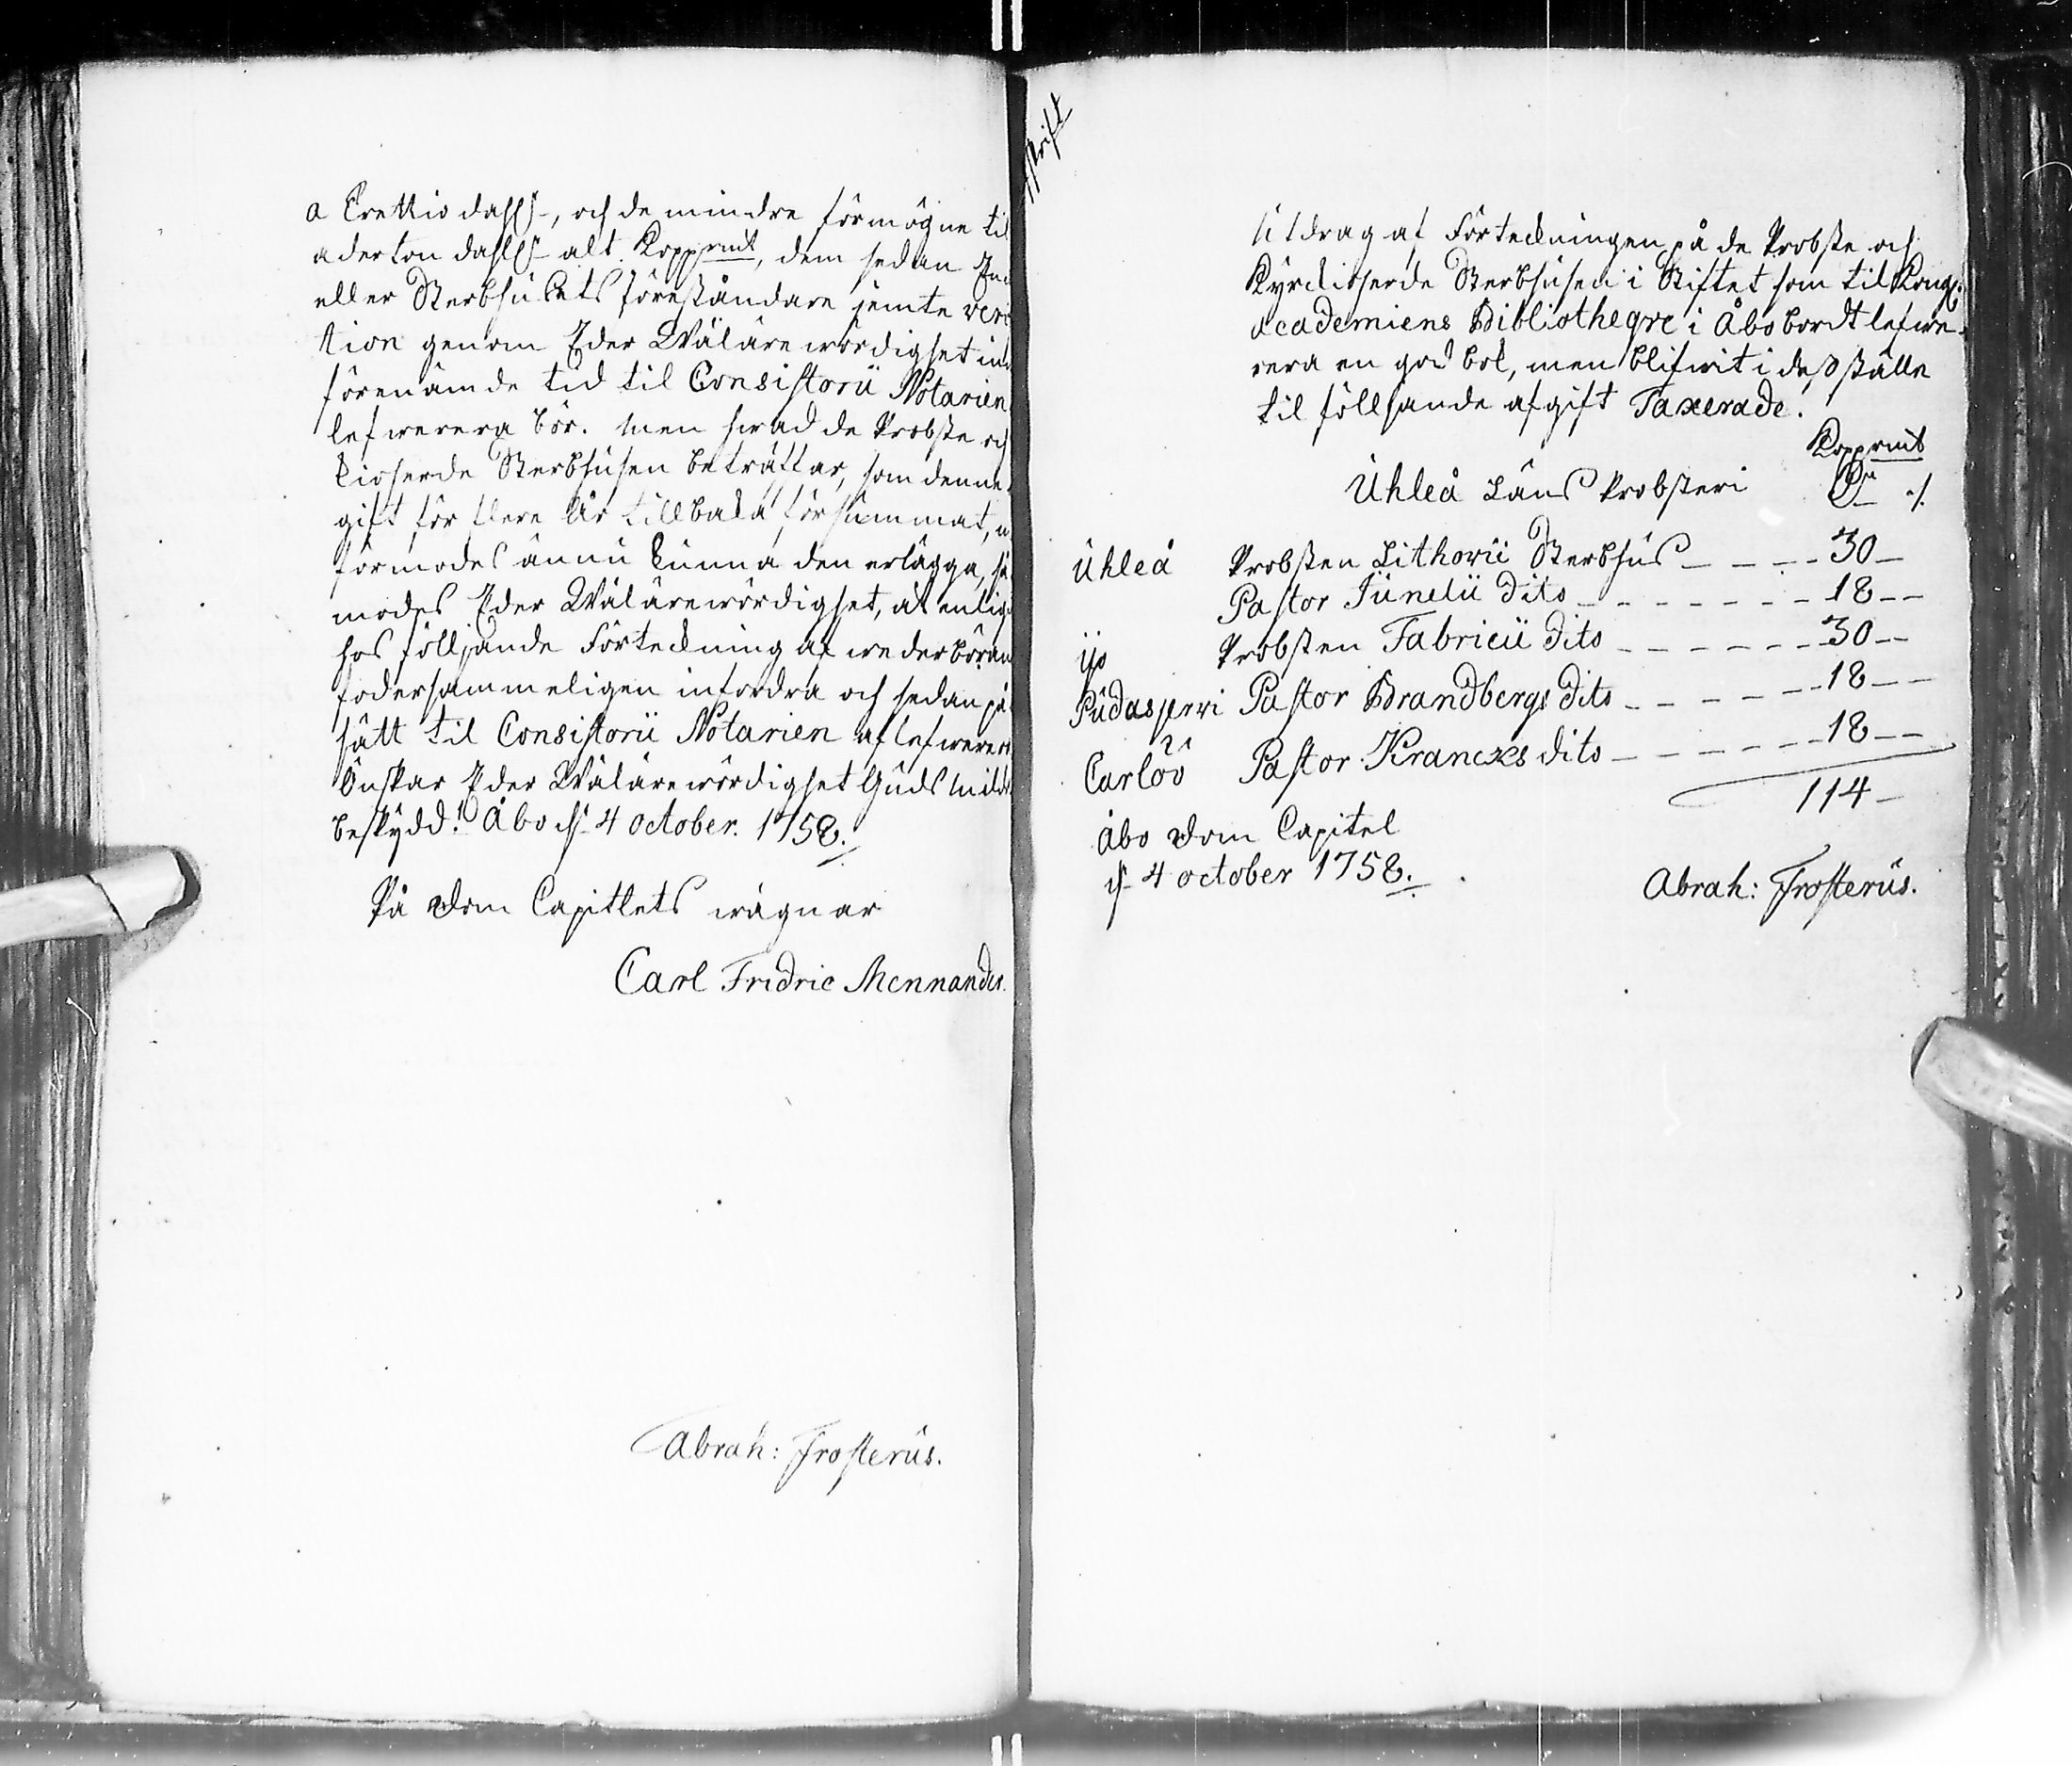 a Trettio dahlr, och de mindre förmögne til
aderton dahlr alt Koppmt, dem sedan
eller Sterbhusets föreståndare jemte
tion genom Eder Wälärewördighet
förenämde tid til Consistorii Notarien
lefwerera bör. Men hwad de Probste och
kioherde Sterbhusen beträffar, som denne
gift för flere år tillbaka försummat,
förmodes ännu kunna den erlägga,
modes Eder Wälärewördighet, at enligt
hos följande Förteckning af wederböran
fodersammeligen infordra och sedan på
sätt til Consistorii Notarien aflefwerera
Önskar Eder Wälärewördighet Guds milda
beskydd! Åbo d. 4 October. 1758.
På Dom Capitlets wägnar
Carl Fridric Mennander.
Abrah: Frosterus.
Utdrag af Förteckningen på de Probste och
Kyrckioherde Sterbhusen i Stiftet som til Kongl.
Academiens Bibliotheqve i Åbo bordt lefwe-
rera en god bok, men blifwit i dess ställe
til följande afgift Taxerade.
Koppmt
Uhleå Läns Probsteri Dr /.
Uhleå Probsten Lithovii Sterbhus - - - - 30 -
Pastor Junelii dito - - - - - - 18 - -
Ijo Probsten Fabricii dito - - - - - - 30 - -
Pudasjervi Pastor Brandbergs dito - - - - - 18 - -
Carlöö Pastor Krancks dito - - - - - - 18 - -
114 -
Åbo Dom Capitel
d. 4 October 1758.
Abrah: Frosterus.